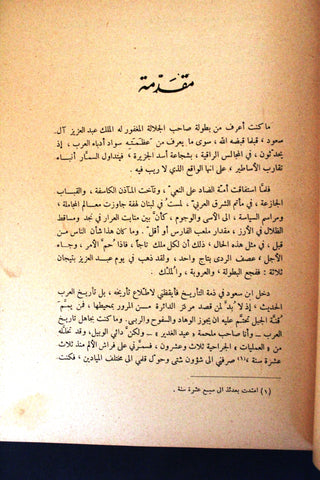 مقدمة
ما كنت أعرف من بطولة صاحب الجلالة المغفور له الملك عبد العزيز آل
سعود ، قبلما قبضه الله ، سوى ما يعرف من عظمته سواد أدباء العرب ، إذ
يتحدثون ، في المجالس الراقية ، بشجاعة أسد الجزيرة ، فيتداول السمار أنباء
تقارب الأساطير ، على انها الواقع الذي لا ريب فيه .
فلما استفاقت أمة الضاد على النعي ، وتلاحت المآذن الكاسفة ، والقباب
الجازعة ، في مآتم الشرق العربي ، لمست في لبنان لهفة جاوزت معالم المجاملة ،
ومراسم السياسة ، الى الأسى والوجوم ، كأن بين منابت العرار في نجد ومساقط
الظلال في الأرز ، مقدار ملعب الفارس أو أقل . وما كان هذا شأن الناس من
قبل ، في مثل هذه الحال ، ذلك أن لكل ملك تاجاً ، فاذا حم الأمر ، وجاء
الأجل ، عصف الردى بتاج واحد ، ولقد ذهب في يوم عبد العزيز بتيجان
ثلاثة : ففجع البطولة ، والعروبة ، والملك .
دخل ابن سعود في ذمة التاريخ فأيقظني لاطلاع تأريخه ، بل تأريخ العرب
الحديث ، إذ لا بد لمن قصد مركز الدائرة من المرور بمحيطها ، فمن يمم
قنة الجبل تحتم عليه ان يجوز الوهاد والسفوح والربى . وما كنت بجاهل تاريخ
العرب ، وأنا صاحب ملحمة « عيد الغدير » — ولكن دائي الوبيل ، وقد تخلله
من « العمليات » الجراحية ثلاث وعشرون ، فسمرني على فراش الألم منذ ثلاث
عشرة سنة (١) ، صرفني الى شؤون شتى وحول قلمي الى مختلف الميادين ، فكنت .
(١) امتدت بعدئذ الى سبع عشرة سنة .